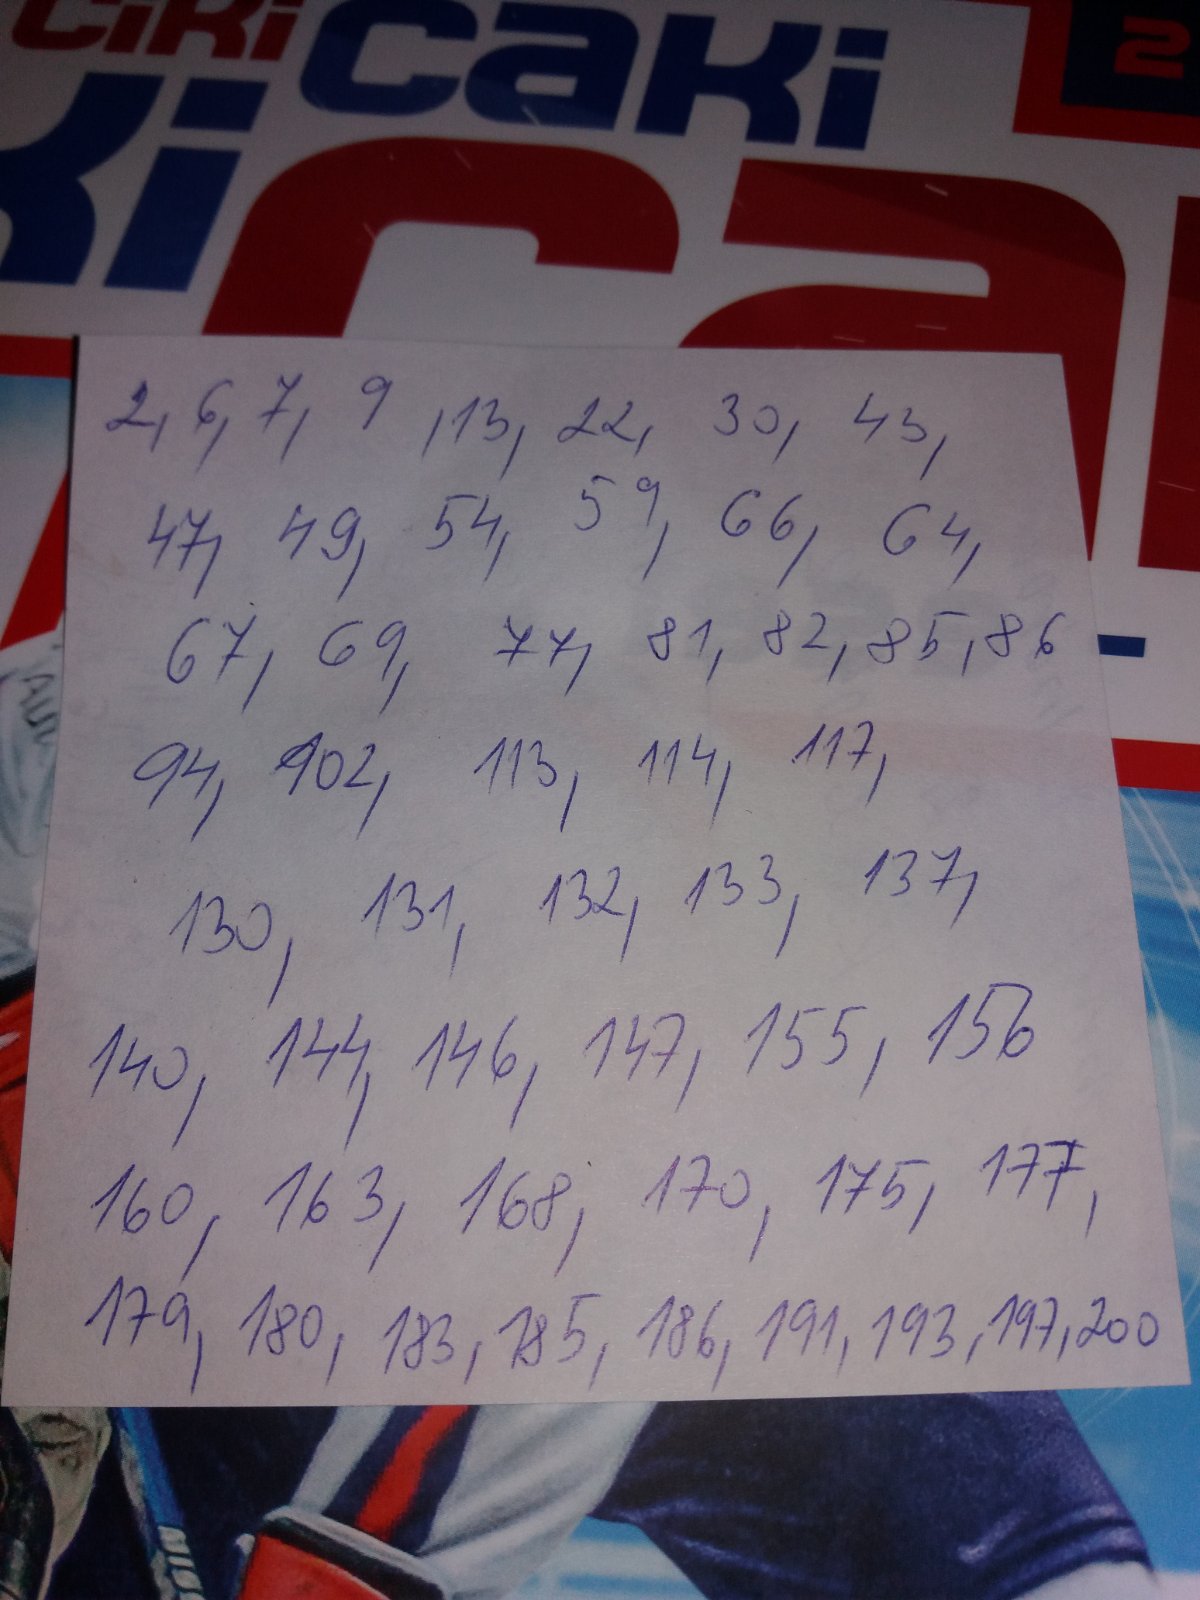 CiKi caKi
2
Ki Ca
2, 6, 7, 9, 13, 22, 30, 43,
47, 49, 54, 59, 66, 64,
67, 69, 77, 81, 82, 85, 86
94, 102, 113, 114, 117,
130, 131, 132, 133, 137,
140, 144, 146, 147, 155, 156
160, 163, 168, 170, 175, 177,
179, 180, 183, 185, 186, 191, 193, 197, 200